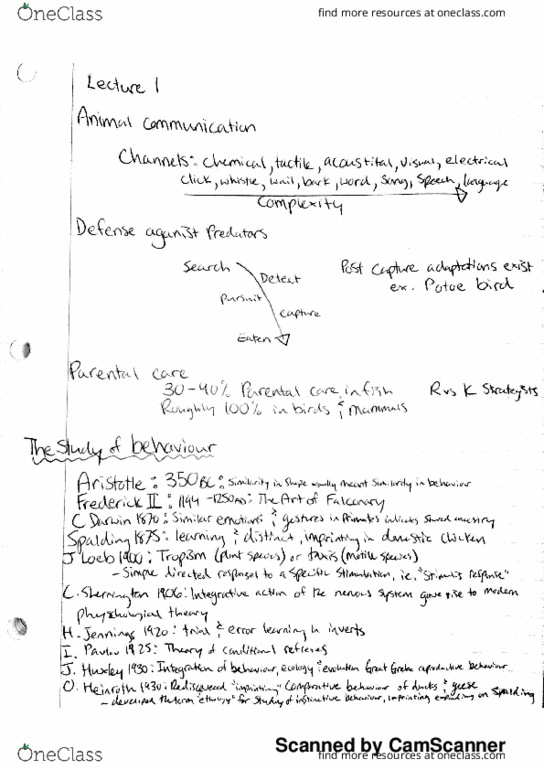 OneClass
find more resources at oneclass.com
Lecture 1
Animal Communication
Channels: chemical, tactile, acoustital, visual, electrical
click, whistle, wail, bark, word, song, speech, language
Complexity
Defense aganist Predators
Search
Detect
Post capture adaptations exist
ex. Potoe bird
pursuit
capture
Eaten
Parental care
30-40% Parental care in fish
R vs K Strategists
Roughly 100% in birds & mammals
The Study of behaviour
Aristotle: 350 BC: Similarity in shape usually meant similarity in behaviour
Frederick II: 1194-1250 AD: The Art of Falconary
C Darwin 1870: Similar emotions & gestures in Primates indicates shared ancestry
Spalding 1875: learning & distinct, imprinting in domestic chicken
J Loeb 1900: Tropism (plant species) or taxis (motile species)
- Simple directed responses to a specific stimulation, i.e. "Stimulis response"
C. Sherrington 1906: Integrative action of the nervous system gave rise to modern
physchological theory
H. Jennings 1920: trial & error learning in inverts
I. Pavlov 1925: Theory of conditional reflexes
J. Huxley 1930: Integration of behaviour, ecology & evolution Great Grebe reproductive behaviour
O. Heinroth 1930: Rediscovered "imprinting" Comparative behaviour of ducks & geese
- developed the term "ethology" for Study of instinctive behaviour, imprinting expanding on Spalding
Scanned by CamScanner
OneClass
find more resources at oneclass.com